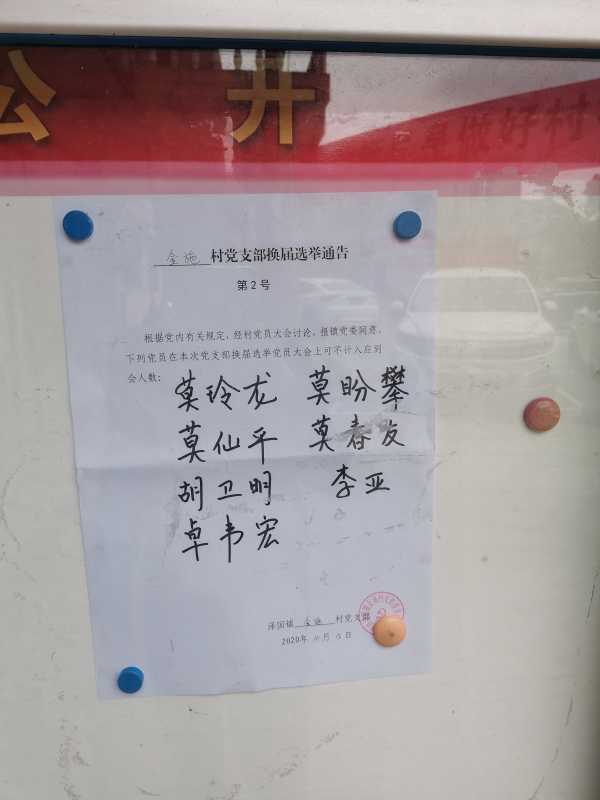 公 开
做好村
金施 村党支部换届选举通告
第 2 号
根据党内有关规定，经村党员大会讨论，报镇党委同意，
下列党员在本次党支部换届选举党员大会上可不计入应到
会人数：
莫玲龙 莫盼攀
莫仙平 莫春友
胡卫明 李亚
卓韦宏
泽国镇 金施 村党支部
2020年 11 月 日